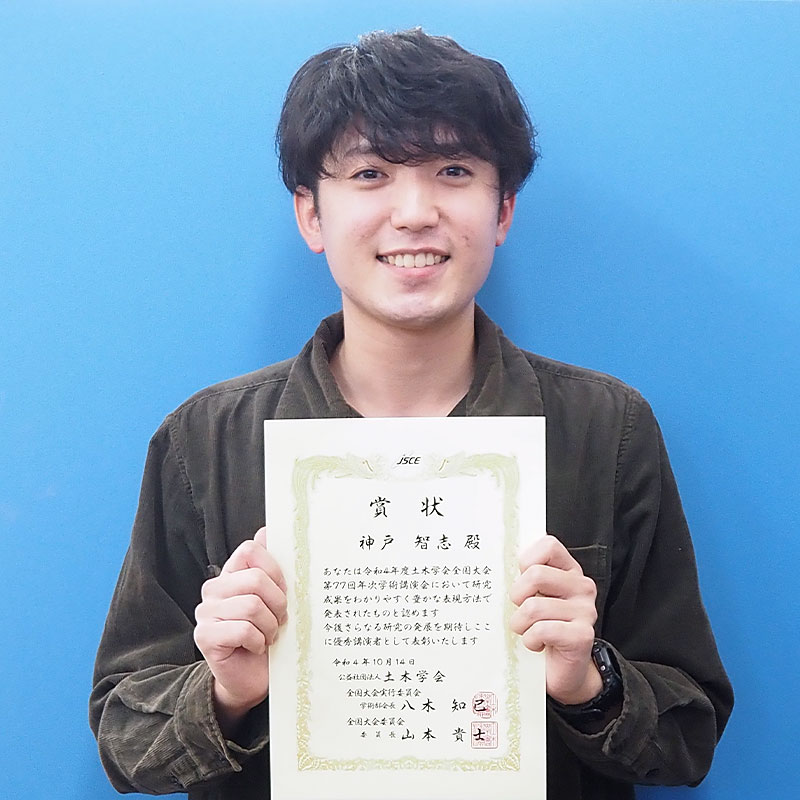 JSCE
賞状
神戸 智志 殿
あなたは令和4年度土木学会全国大会
第77回年次学術講演会において研究
成果をわかりやすく豊かな表現方法で
発表されたものと認めます
今後さらなる研究の発展を期待しここ
に優秀講演者として表彰いたします
令和4年10月14日
公益社団法人 土木学会
全国大会実行委員会
学術部会長 八木 知己
全国大会委員会
委員長 山本 貴士